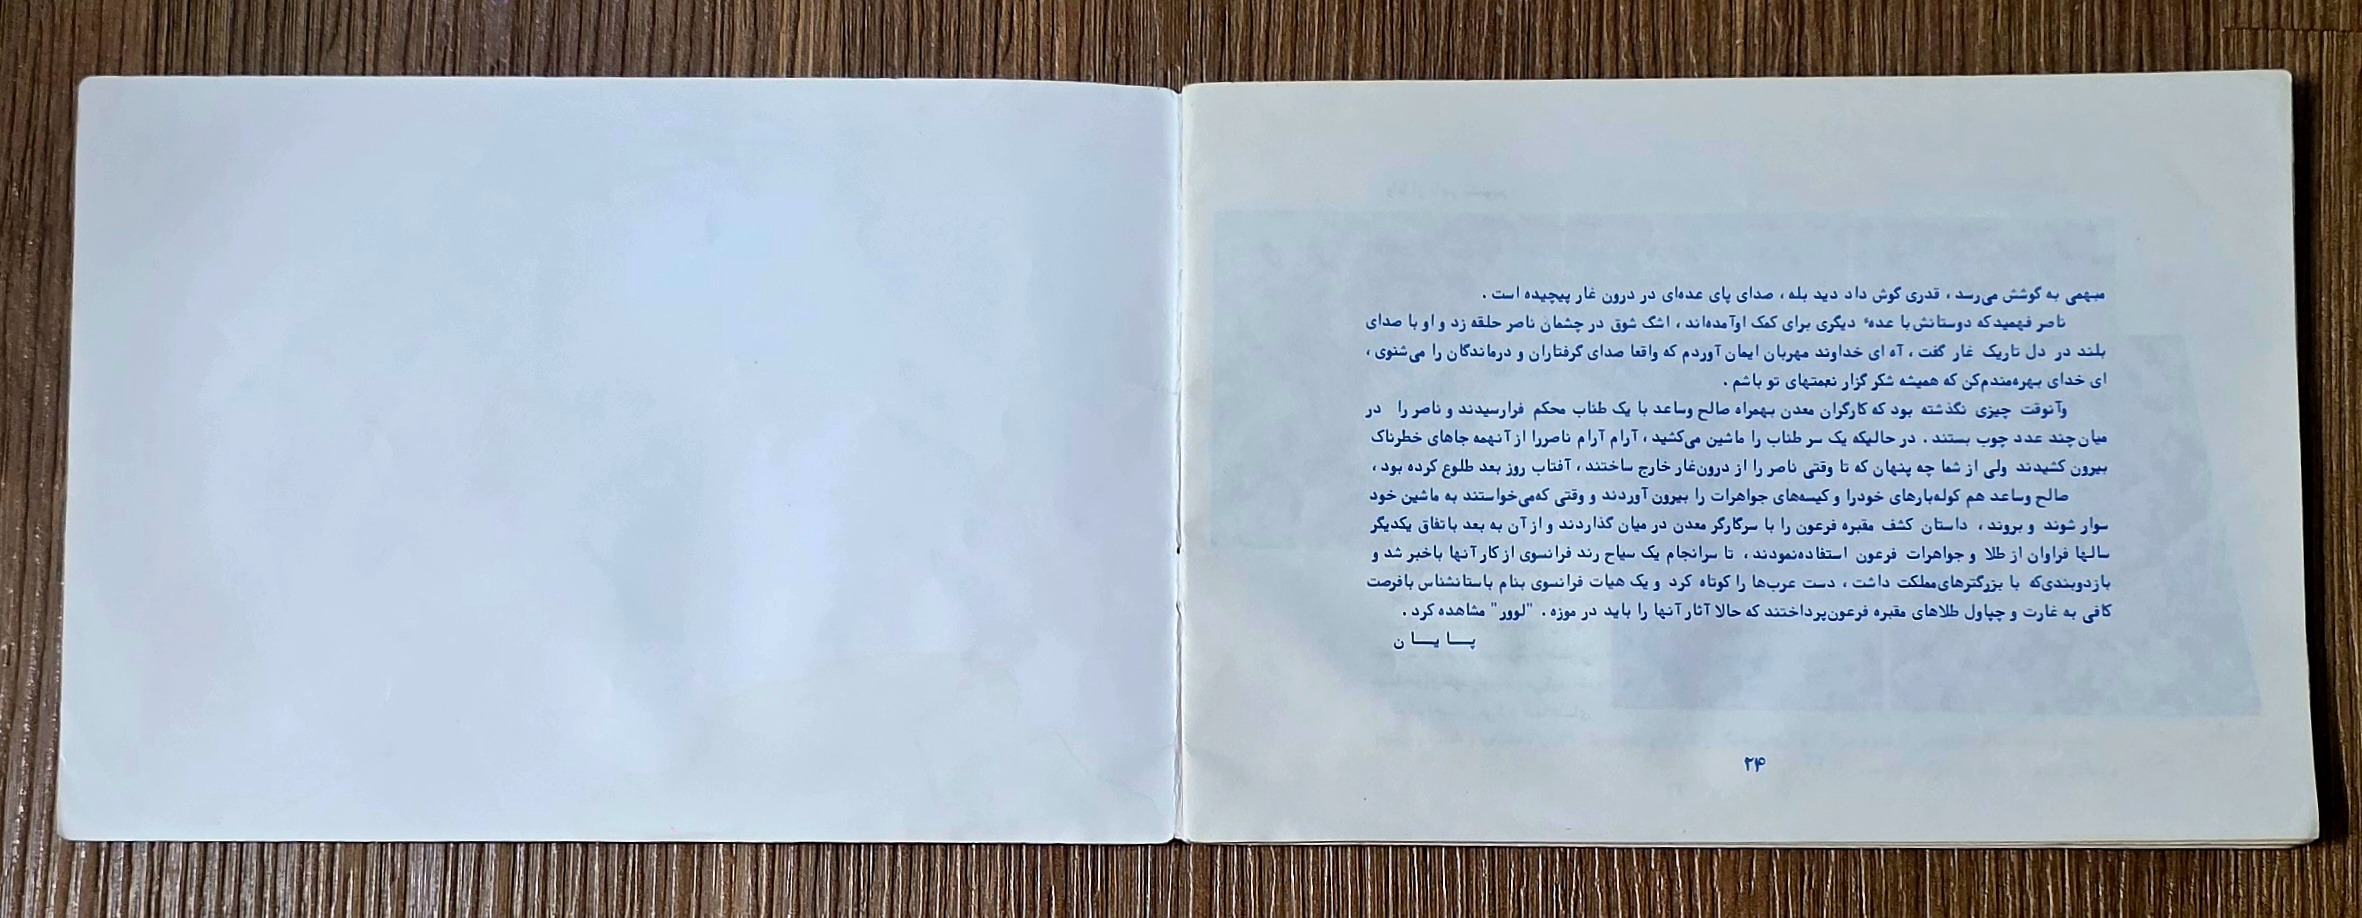 مبهمی به گوشش می‌رسد، قدری گوش داد دید بله، صدای پای عده‌ای در درون غار پیچیده است.
ناصر فهمید که دوستانش با عدهٔ دیگری برای کمک او آمده‌اند، اشگ شوق در چشمان ناصر حلقه زد و او با صدای
بلند در دل تاریک غار گفت، آه ای خداوند مهربان ایمان آوردم که واقعا صدای گرفتاران و درماندگان را می‌شنوی،
ای خدای بهره‌مندم‌کن که همیشه شکر گزار نعمتهای تو باشم.
وآنوقت چیزی نگذشته بود که کارگران معدن بهمراه صالح وساعد با یک طناب محکم فرارسیدند و ناصر را در
میان چند عدد چوب بستند. در حالیکه یک سر طناب را ماشین می‌کشید، آرام آرام ناصررا از آنهمه جاهای خطرناک
بیرون کشیدند ولی از شما چه پنهان که تا وقتی ناصر را از درون‌غار خارج ساختند، آفتاب روز بعد طلوع کرده بود،
صالح وساعد هم کوله‌بارهای خودرا و کیسه‌های جواهرات را بیرون آوردند و وقتی که‌می‌خواستند به ماشین خود
سوار شوند و بروند، داستان کشف مقبره فرعون را با سرگارگر معدن در میان گذاردند و از آن به بعد باتفاق یکدیگر
سالها فراوان از طلا و جواهرات فرعون استفاده‌نمودند، تا سرانجام یک سیاح رند فرانسوی از کار آنها باخبر شد و
بازدوبندی‌که با بزرگترهای‌مملکت داشت، دست عرب‌ها را کوتاه کرد و یک هیات فرانسوی بنام باستانشناس بافرصت
کافی به غارت و چپاول طلاهای مقبره فرعون‌پرداختند که حالا آثار آنها را باید در موزه. "لوور" مشاهده کرد.
پـایـان
۲۴